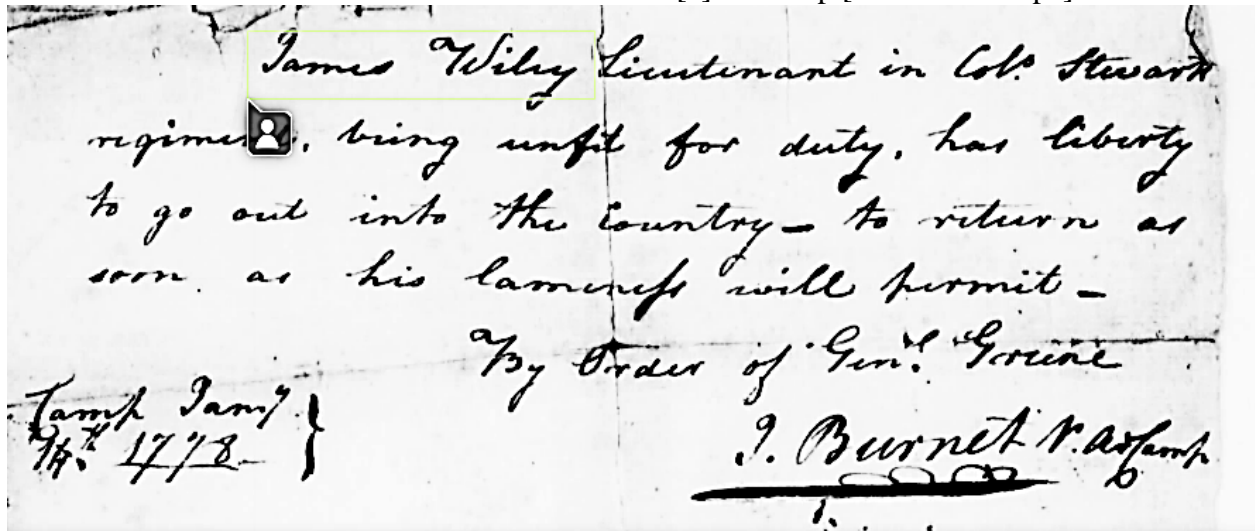 James Wiley Lieutenant in Colo. Stewart
regiment, being unfit for duty, has liberty
to go out into the Country – to return as
soon as his lameness will permit –
By Order of Genl. Greene
Camp Jany
1778
J. Burnet A. D Camp